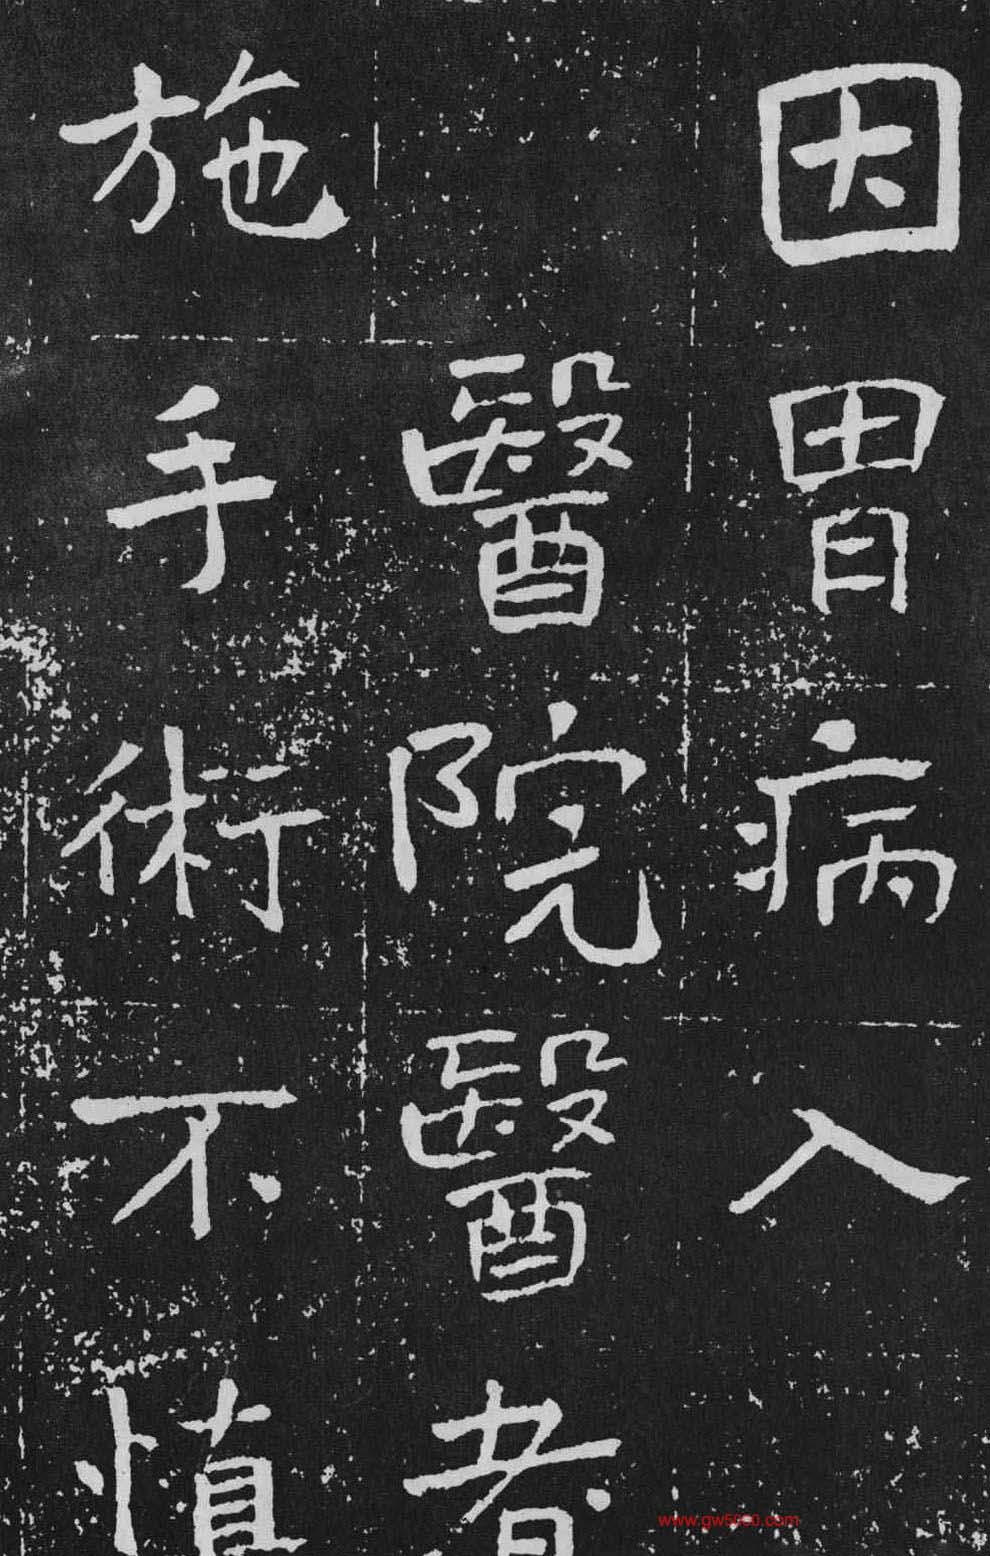 因胃病入
醫院醫者
施手術不慎
www.gw5000.com